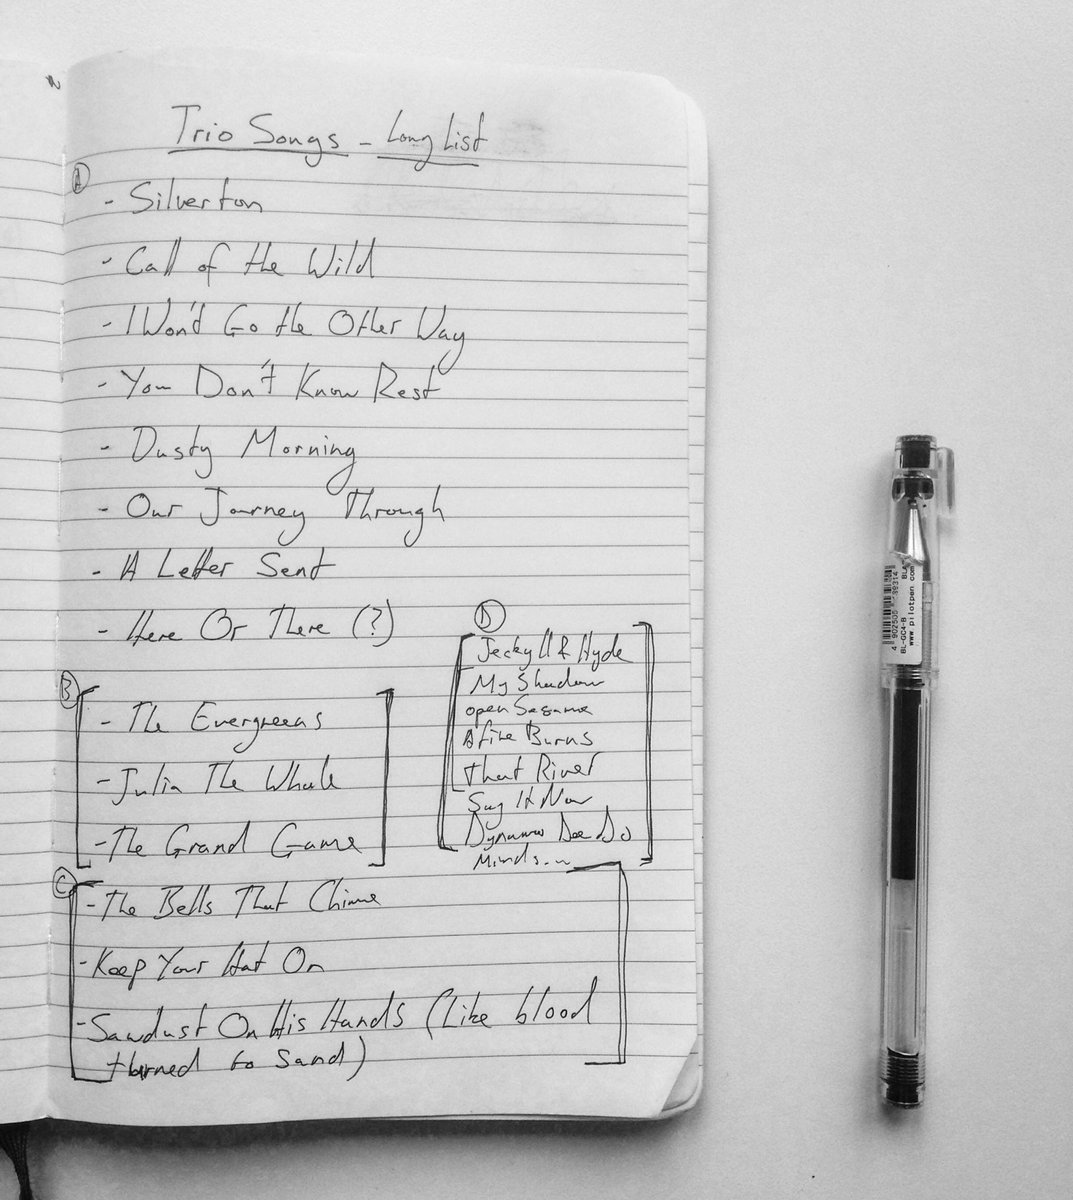 Trio Songs - Long List
A
- Silverton
- Call of the Wild
- I Won't Go the Other Way
- You Don't Know Rest
- Dusty Morning
- Our Journey Through
- A Letter Sent
- Here Or There (?)
B
- The Evergreens
- Julia The Whale
- The Grand Game
C
- The Bells That Chime
- Keep Your Hat On
- Sawdust On His Hands (Like blood
turned to sand)
D
Jeckyll & Hyde
My Shadow
open Sesame
A fire Burns
that River
Say It Now
Dynamo
Minds...
4 902505 139314
BL-GC4-B
www.pilotpen.com